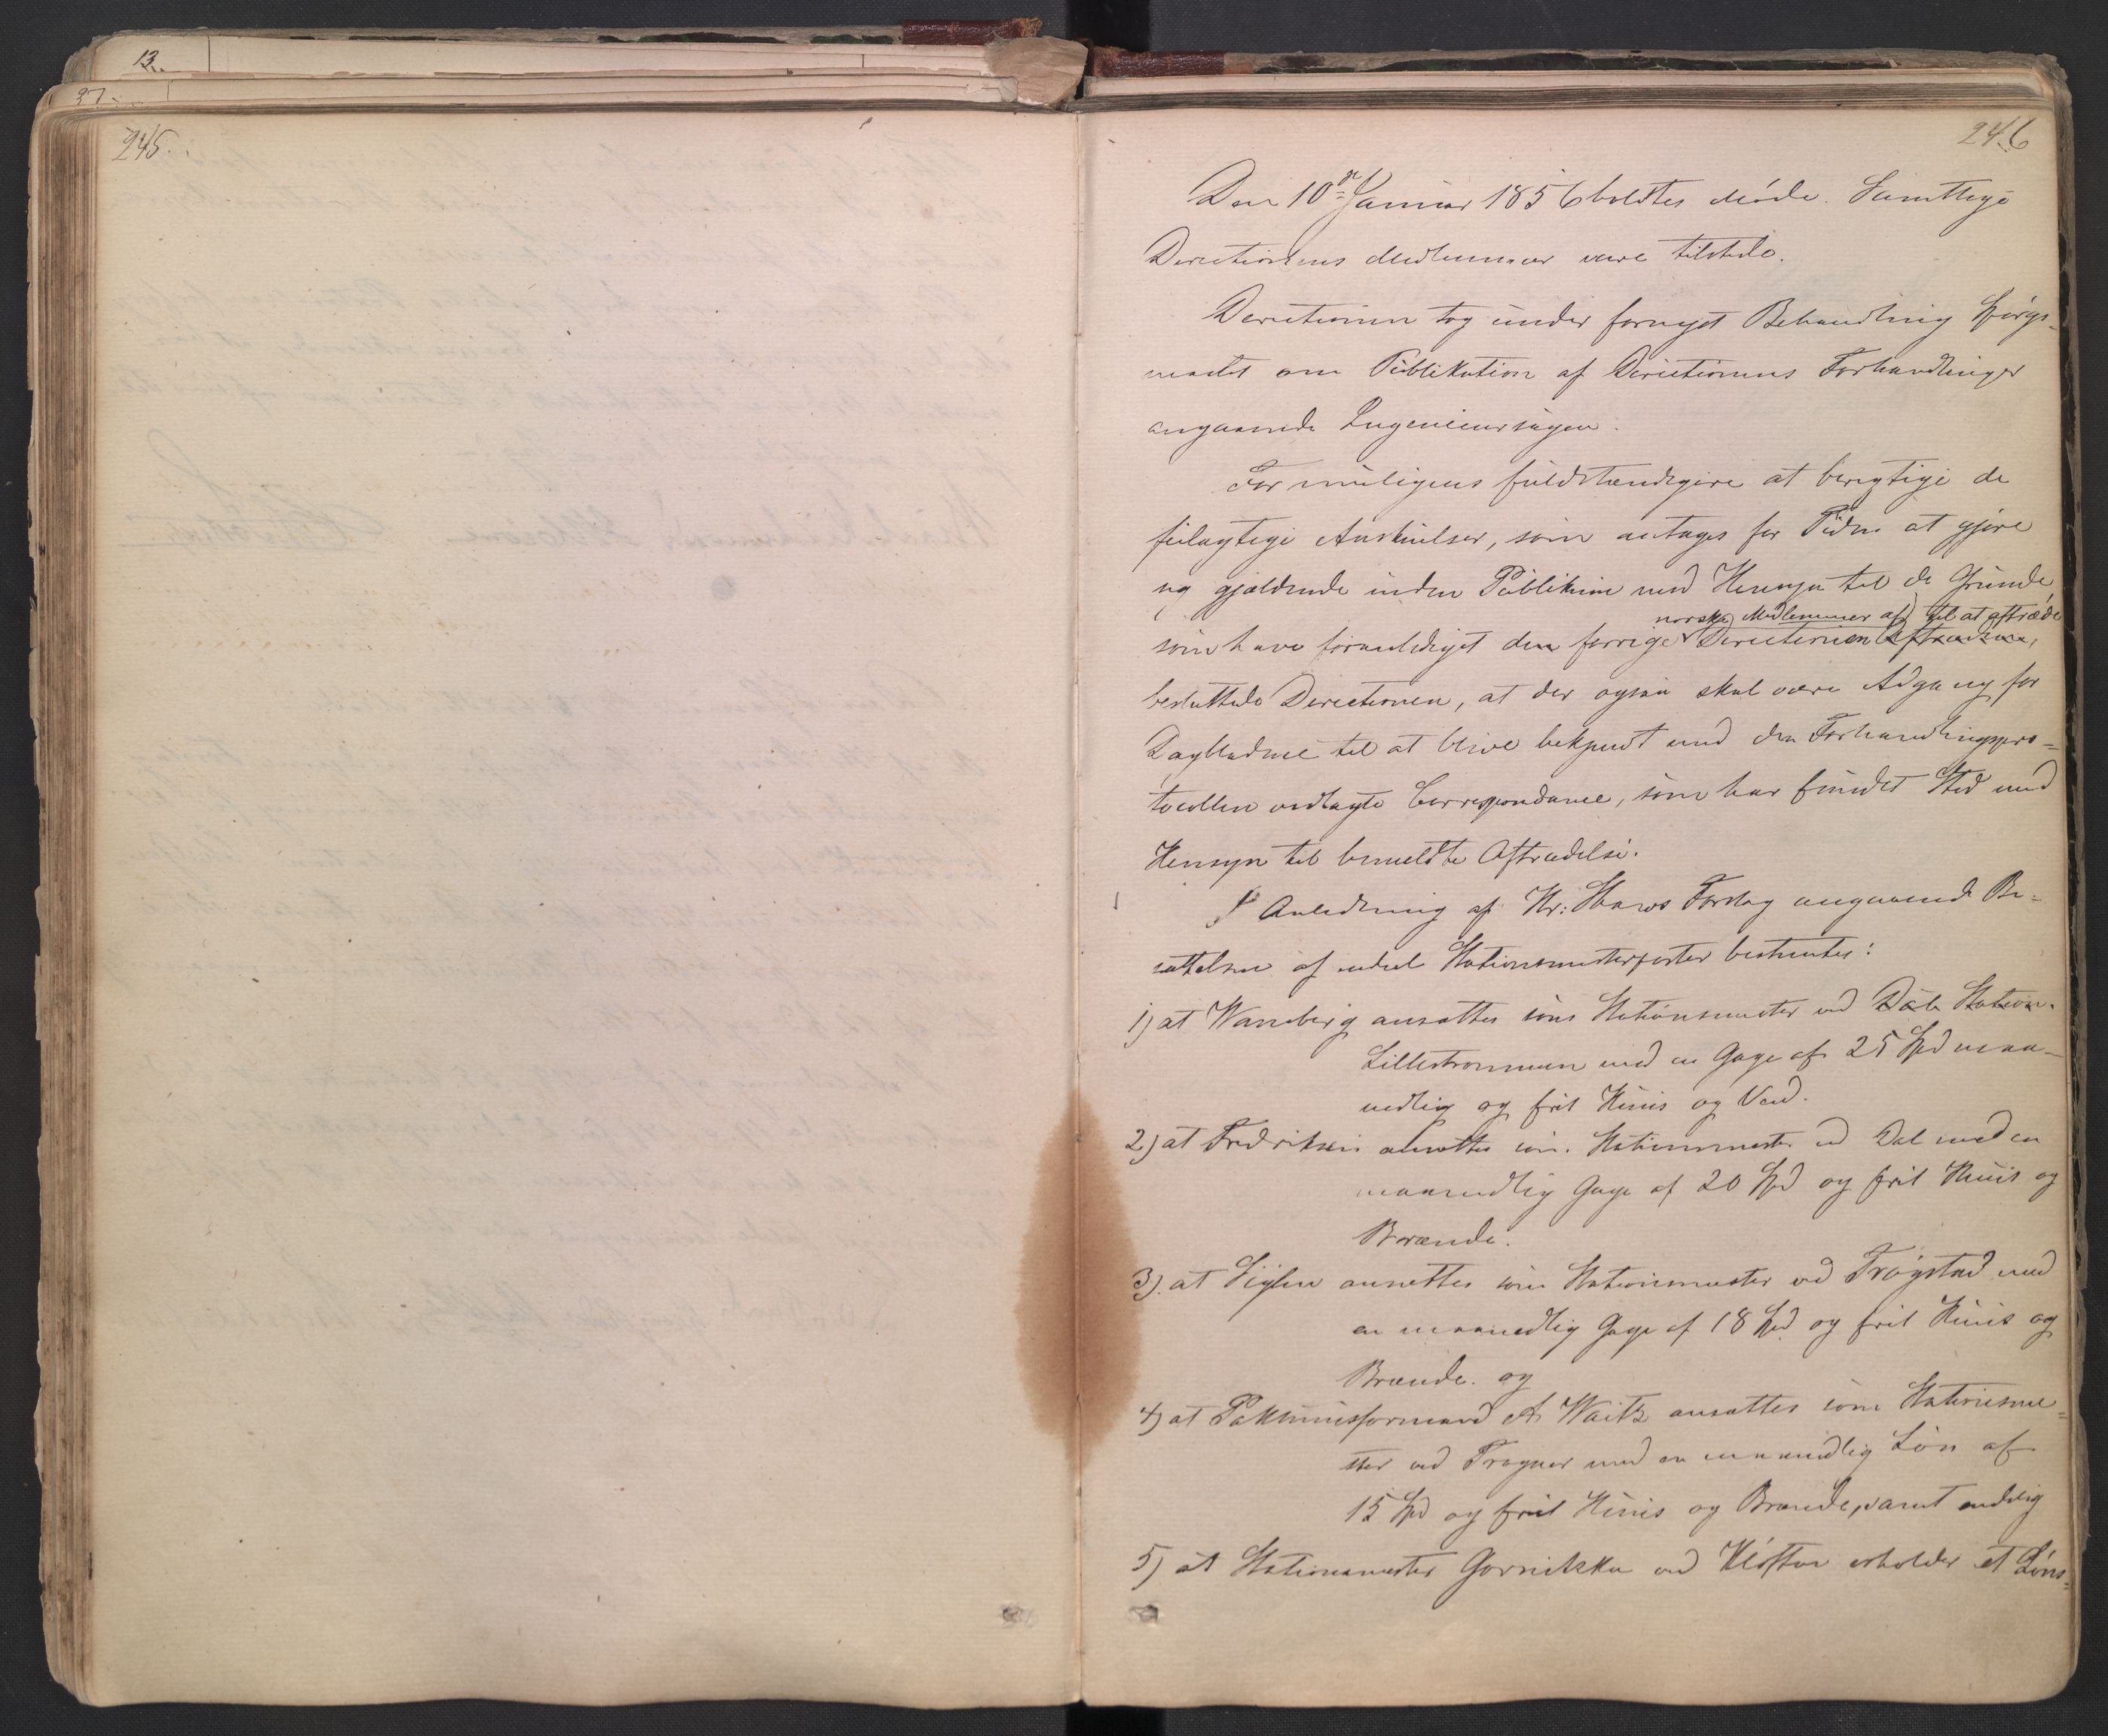 13.
37.
245.
246
Den 10de Januar 1856 holdtes Møde. Samtlige
Directionens Medlemmer vare tilstede.
Directionen tog under fornyet Behandling Spørgs-
maalet om Publikation af Directionens Forhandlinger
angaaende Ingenieursagen.
For muligens fuldstændigere at berigtige de
feilagtige Anskuelser, som antages for Tiden at gjøre
sig gjældende inden Publikum med Hensyn til de Grunde
norske Medlemmer af til at aftræde
som have foranlediget den forrige Directionen Aftrædelse,
besluttede Directionen, at der ogsaa skal være Adgang for
Dagbladene til at blive bekjendt med den Forhandlingspro-
tocollen vedlagte Correspondance, som har fundet Sted med
Hensyn til bemeldte Aftrædelse.
I Anledning af Hr: Shaws Forslag angaaende Be-
sættelsen af endeel Stationsmesterposter bestemtes:
1) at Wamberg ansættes som Stationsmester ved Dale Station
Lillestrømmen med en Gage af 25 Spd maa-
nedlig og frit Huus og Ved.
2) at Fredriksen ansættes som Stationsmester ved Dal med en
maanedlig Gage af 20 Spd og frit Huus og
Brænde.
3). at ansættes som Stationsmester ved Trøgstad med
en maanedlig Gage af 18 Spd og frit Huus og
Brænde. og
4) at Pakhuusformand A Waitz ansættes som Stationsme-
ster ved Frogner med en maanedlig Løn af
15 Spd og frit Huus og Brænde, samt endelig
5) at Stationsmester ved Kløften erholder et Løns-